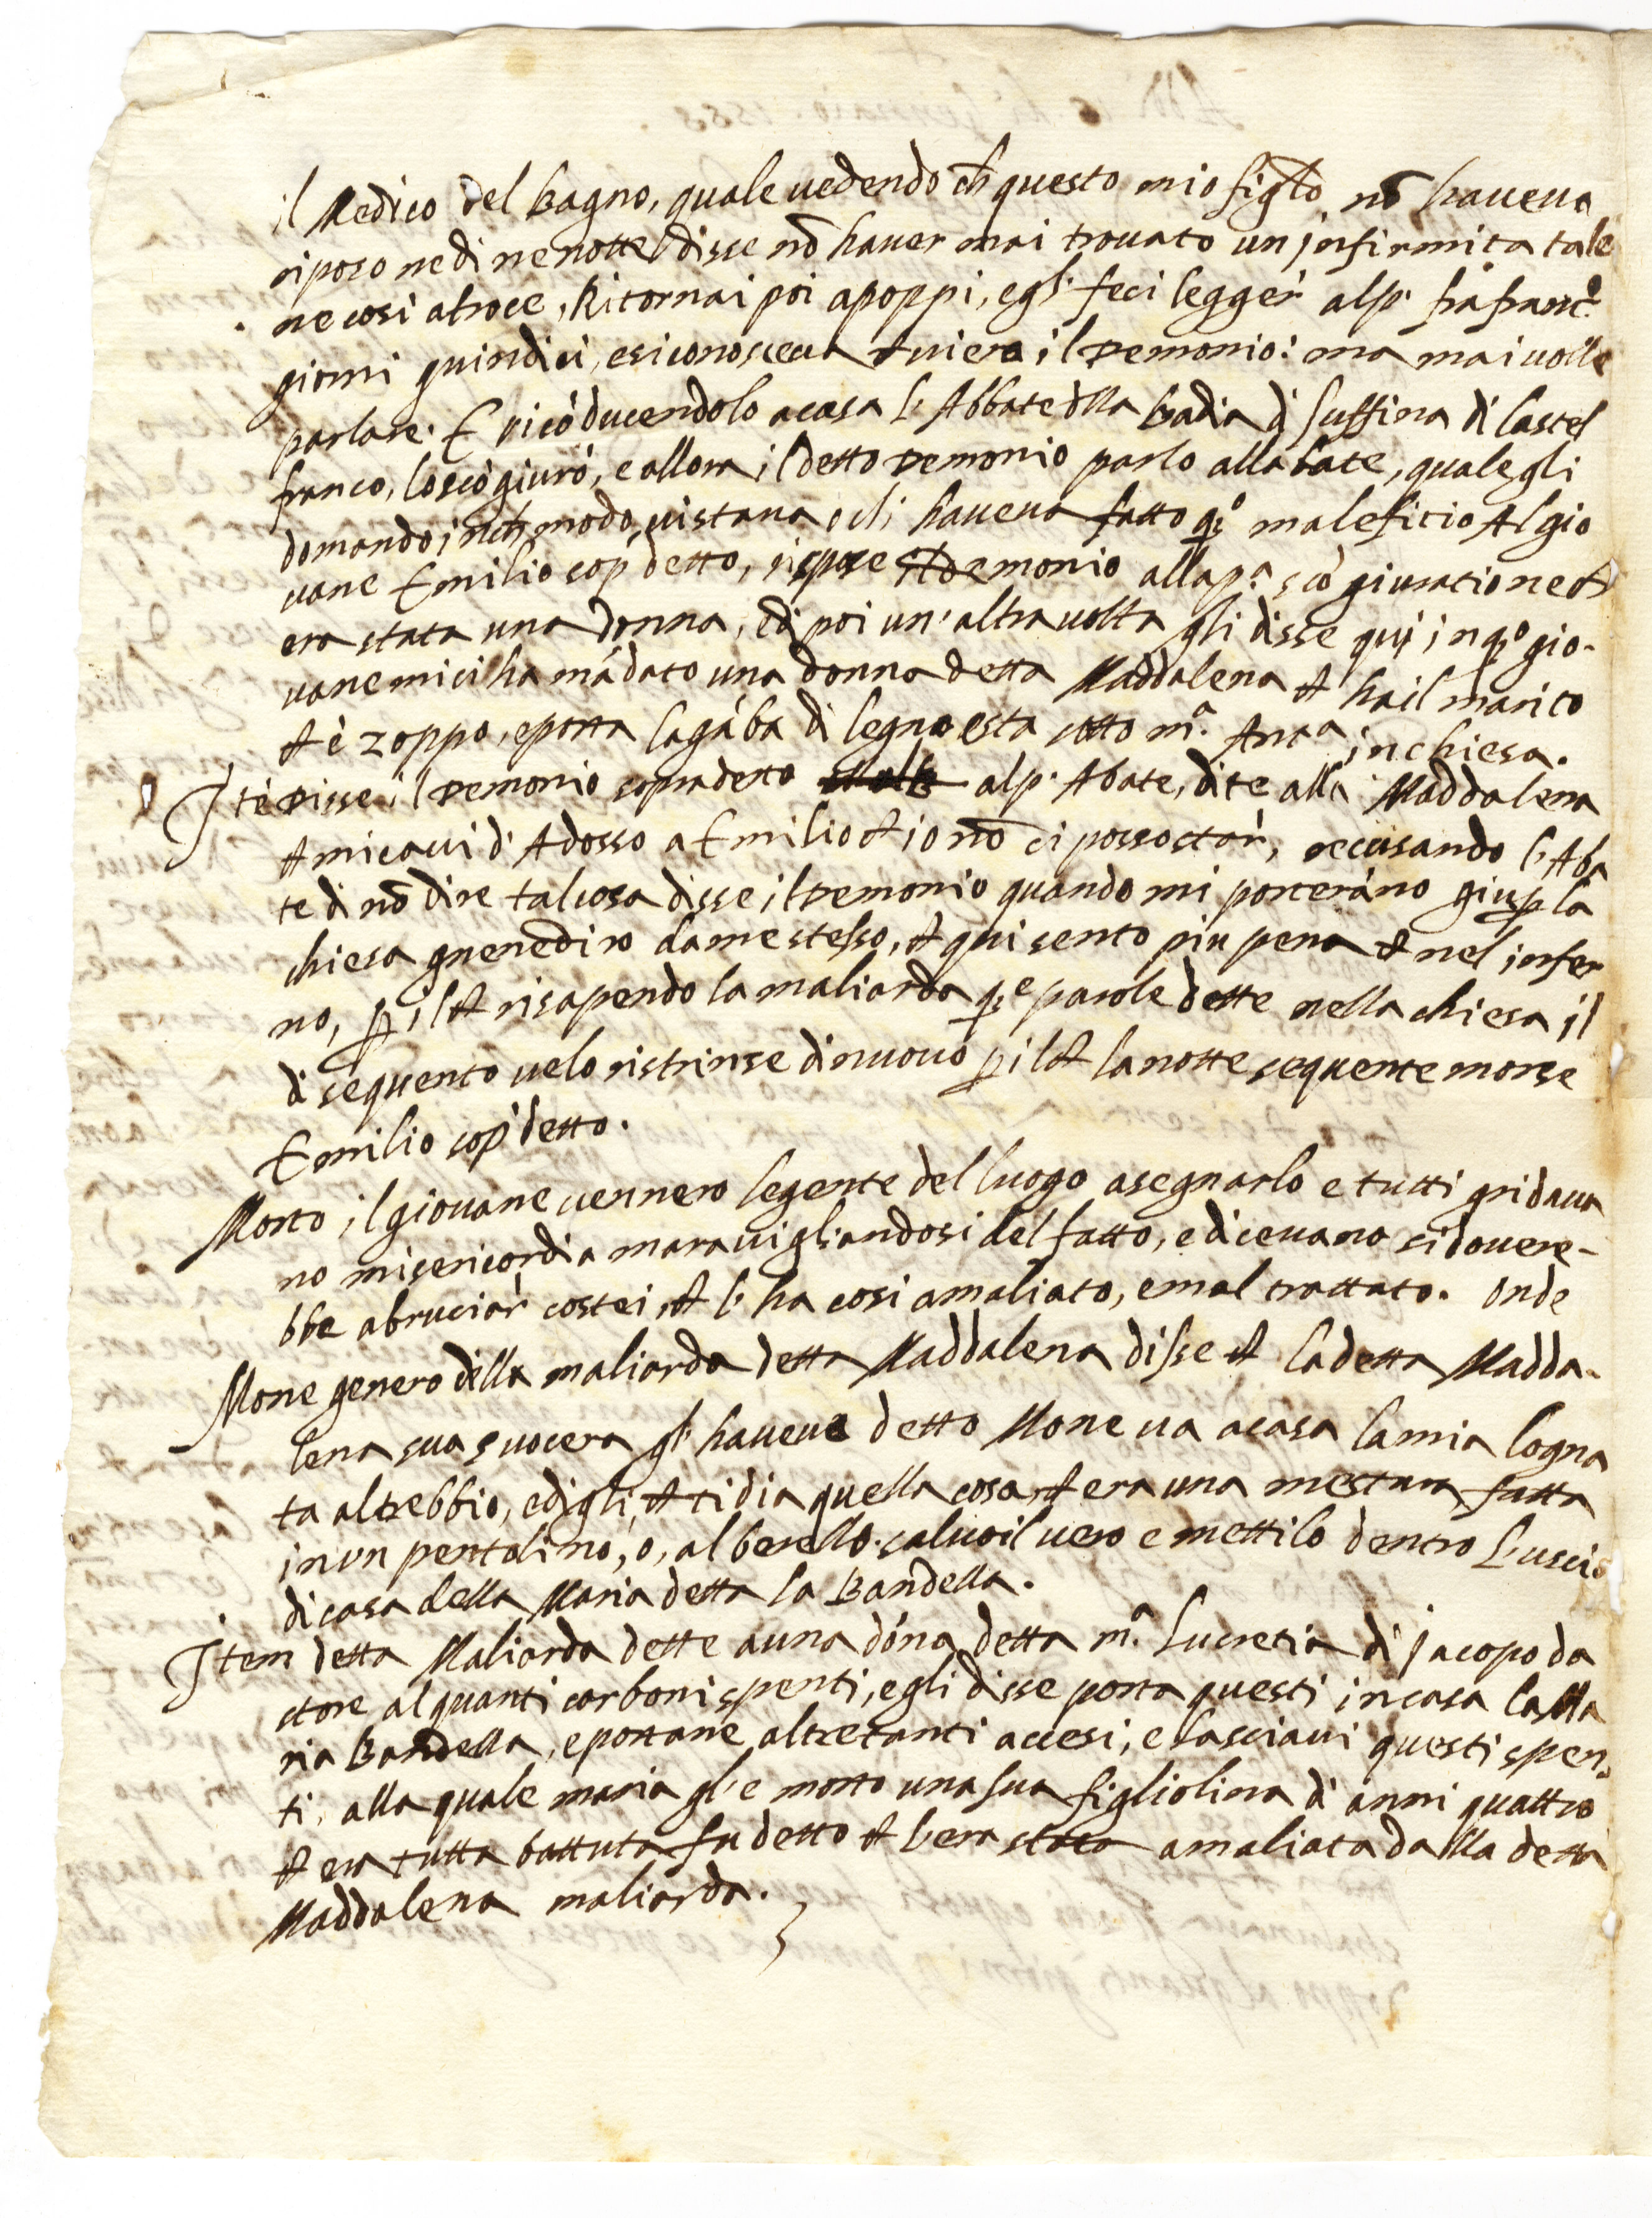 il Medico del bagno, quale uedendo ch questo mio figlo nō haueua
riposo ne dì ne notte disse nō hauer mai trouato un jnfirmita tale
ne cosi atroce, Ritornai poi a poppi, e gl' feci legger al p. fra franc.o
giorni quindici, e si conosceua ch ui era il Demonio: ma mai uolle
parlare. E ricōducendolo a casa l' Abbate dlla badia di suffina di Castel
franco, lo scōgiurò, e allora il detto Demonio parlo all abate, quale gli
domando in ch modo ui staua o chi haueua fatto q.o maleficio Al gio
uane Emilio sop detto, rispose il demonio alla p.a scōgiuratione ch
era stata una donna, e di poi un' altra uolta gli disse qui in q.o gio-
uane mi ci ha mādato una donna detta Maddalena ch ha il marito
ch è zoppo, e porta la gāba di legno e sta sotto m.a Ant.a in chiesa.
Itē Disse il Demonio sopradetto al p. Abate, dite alla Maddalena
ch mi caui d' Adosso a Emilio ch io nō ci posso star, recusando l' Aba
te di nō dire tal cosa disse il Demonio quando mi porterāno giu p la
chiesa gnene diro da me stesso, ch qui sento piu pena ch nel infer
no, p il ch risapendo la maliarda q.e parole dette nella chiesa il
dì sequento uelo ristrinse di nuouo p il ch la notte sequente morse
Emilio sop detto.
Morto il giouane uennero le gente del luogo a segnarlo e tutti gridaua
no misericordia marauigliandosi del fatto, e diceuano si douere-
bbe abruciar costei, ch l' ha cosi amaliato, e mal trattato. Onde
Mone genero della maliarda detta Maddalena disse ch la detta Madda-
lena sua suocera gl' haueua detto Mone ua a casa la mia Cogna
ta al trebbio, e di gli, ch ti dia quella cosa, ch era una mestura fatta
in un pentolino, o, alberello. saluo il uero e mettilo dentro l'uscio
di casa della Maria detta la Bandella.
Item detta Maliarda dette a una dōna detta m.a Lucretia di Jacopo da
store alquanti carboni spenti, e gli disse porta questi in casa la Ma
ria Bandella, e portane altretanti accesi, e lasciaui questi spen-
ti, alla quale maria gl' e morto una sua figliolina di anni quattro
ch era tutta battuta fu detto ch l'era stata amaliata dalla detta
Maddalena maliarda.